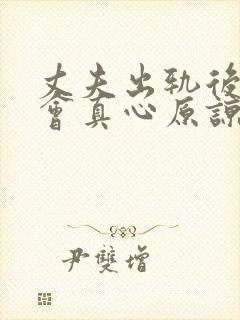 丈夫出轨後
會真心原諒
尹雙增